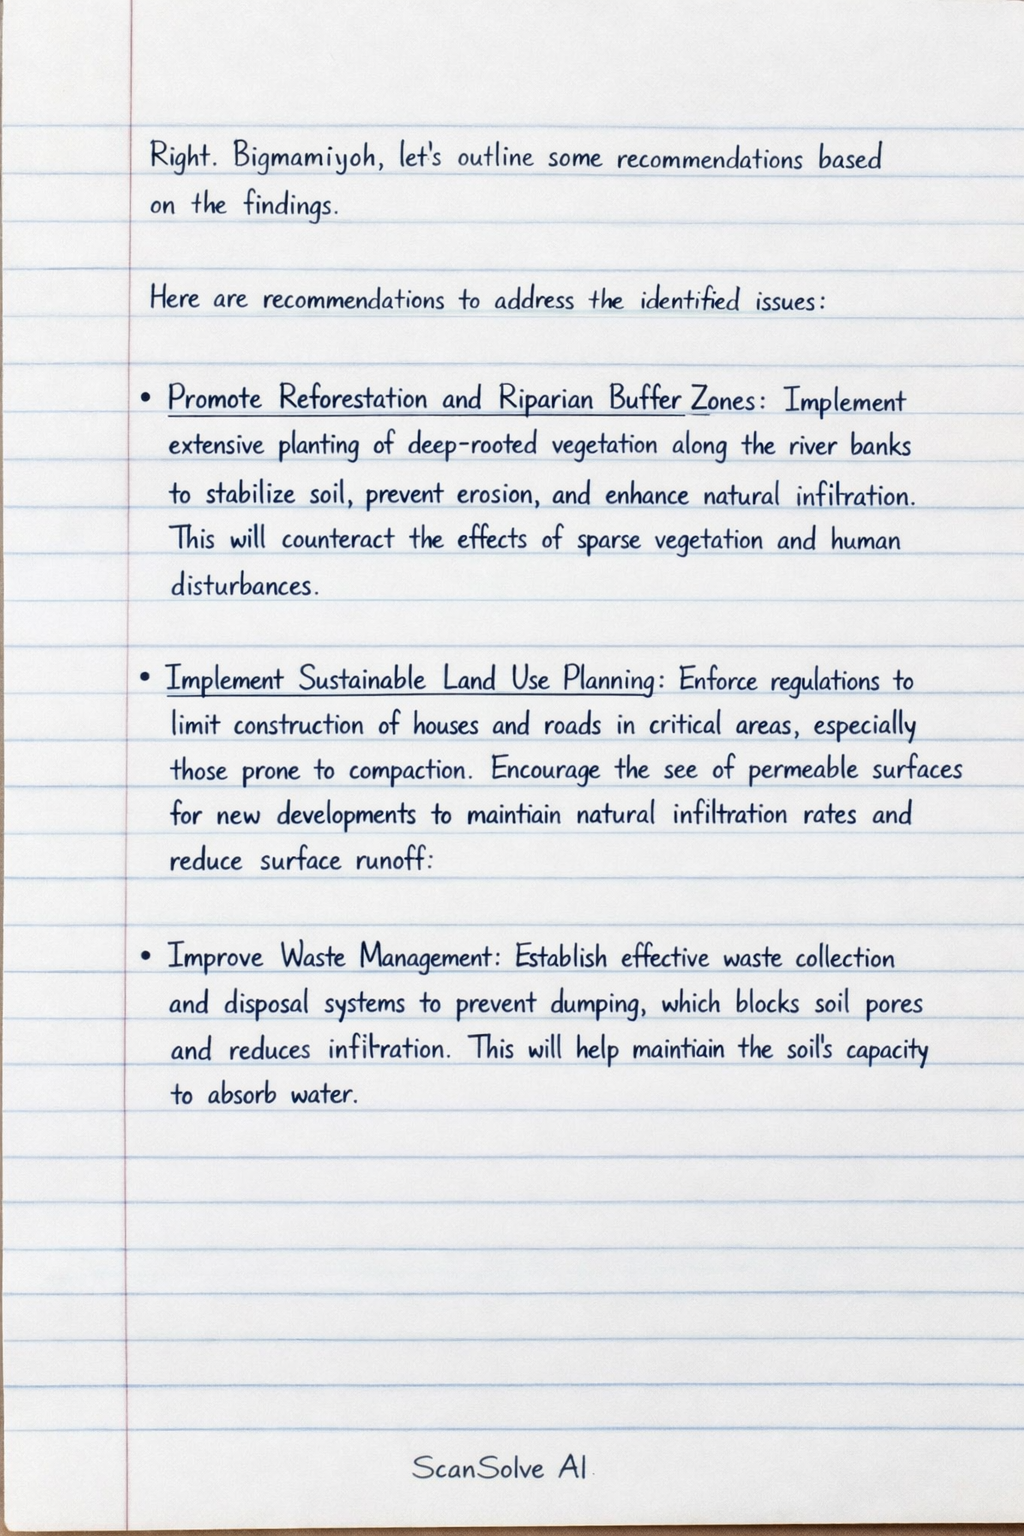 Right. Bigmamiyoh, let's outline some recommendations based
on the findings.
Here are recommendations to address the identified issues:
• Promote Reforestation and Riparian Buffer Zones: Implement
extensive planting of deep-rooted vegetation along the river banks
to stabilize soil, prevent erosion, and enhance natural infiltration.
This will counteract the effects of sparse vegetation and human
disturbances.
• Implement Sustainable Land Use Planning: Enforce regulations to
limit construction of houses and roads in critical areas, especially
those prone to compaction. Encourage the see of permeable surfaces
for new developments to maintiain natural infiltration rates and
reduce surface runoff:
• Improve Waste Management: Establish effective waste collection
and disposal systems to prevent dumping, which blocks soil pores
and reduces infiltration. This will help maintiain the soil's capacity
to absorb water.
ScanSolve AI